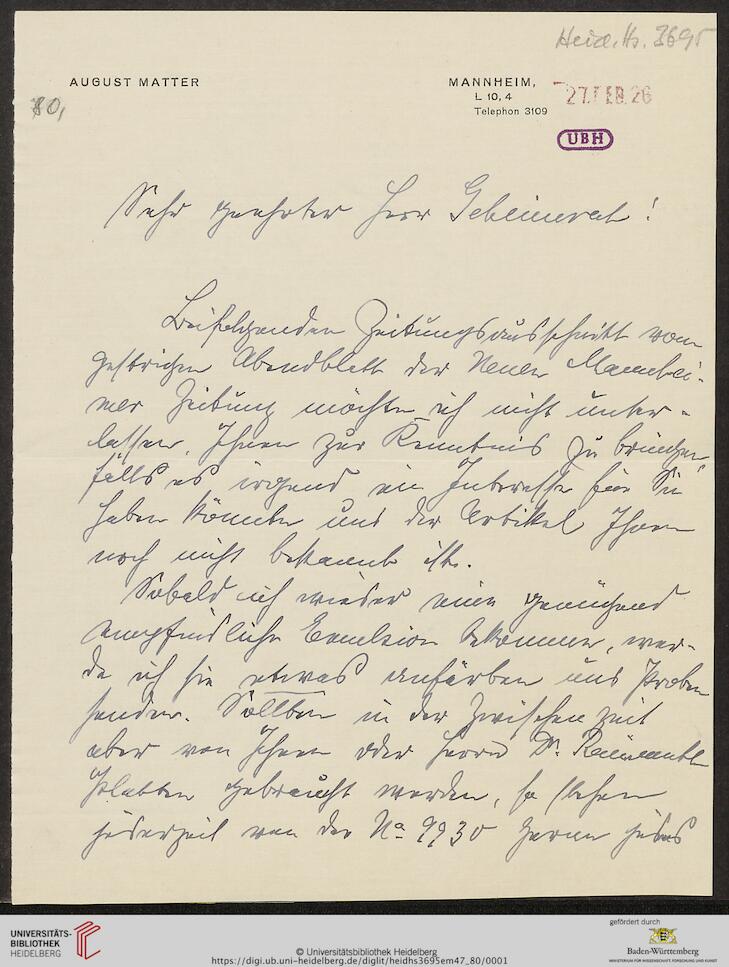 Heid. Hs. 3695
AUGUST MATTER
MANNHEIM,
L 10, 4
Telephon 3109
27. FEB. 26
80,
UBH
Sehr geehrter Herr Geheimerat!
Beifolgenden Zeitungsausschnitt vom
gestrigen Abendblatt der Neuen Mannhei-
mer Zeitung möchte ich nicht unter-
lassen, Ihnen zur Kenntnis zu bringen,
falls es irgend ein Interesse für Sie
haben könnte und der Artikel Ihnen
noch nicht bekannt ist.
Sobald ich wieder eine genügend
empfindliche Emulsion bekomme, wer-
de ich sie etwas anfärben und Proben
senden. Sollten in der Zwischenzeit
aber von Ihnen oder Herrn Dr.
Platten gebraucht werden, so stehen
jederzeit von der No 9930 gerne
UNIVERSITÄTS-
BIBLIOTHEK
HEIDELBERG
© Universitätsbibliothek Heidelberg
https://digi.ub.uni-heidelberg.de/diglit/heidhs3695em47_80/0001
gefördert durch
Baden-Württemberg
MINISTERIUM FÜR WISSENSCHAFT, FORSCHUNG UND KUNST